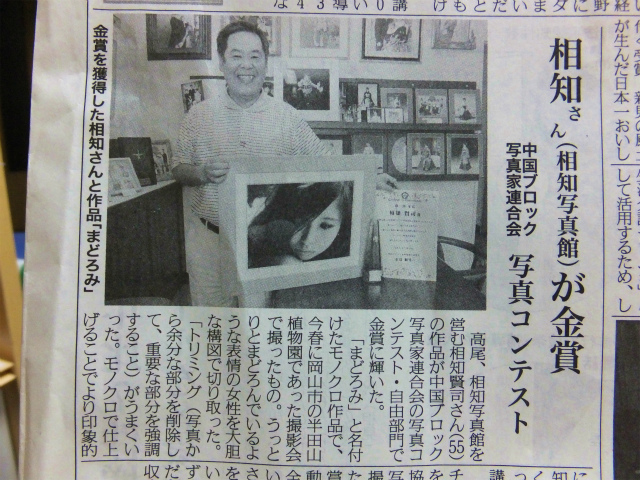 相知さん(相知写真館)が金賞
中国ブロック
写真家連合会
写真コンテスト
金賞を獲得した相知さんと作品「まどろみ」
高尾、相知写真館を
営む相知賢司さん(55)
の作品が中国ブロック
写真家連合会の写真コ
ンテスト・自由部門で
金賞に輝いた。
「まどろみ」と名付
けたモノクロ作品で、
今春に岡山市の半田山
植物園であった撮影会
で撮ったもの。うっと
りとまどろんでいるよ
うな表情の女性を大胆
な構図で切り取った。
「トリミング(写真か
ら余分な部分を削除し
て、重要な部分を強調
すること)がうまくい
った。モノクロで仕上
げることでより印象的
が生んだ日本一おいし
して活用するため、し